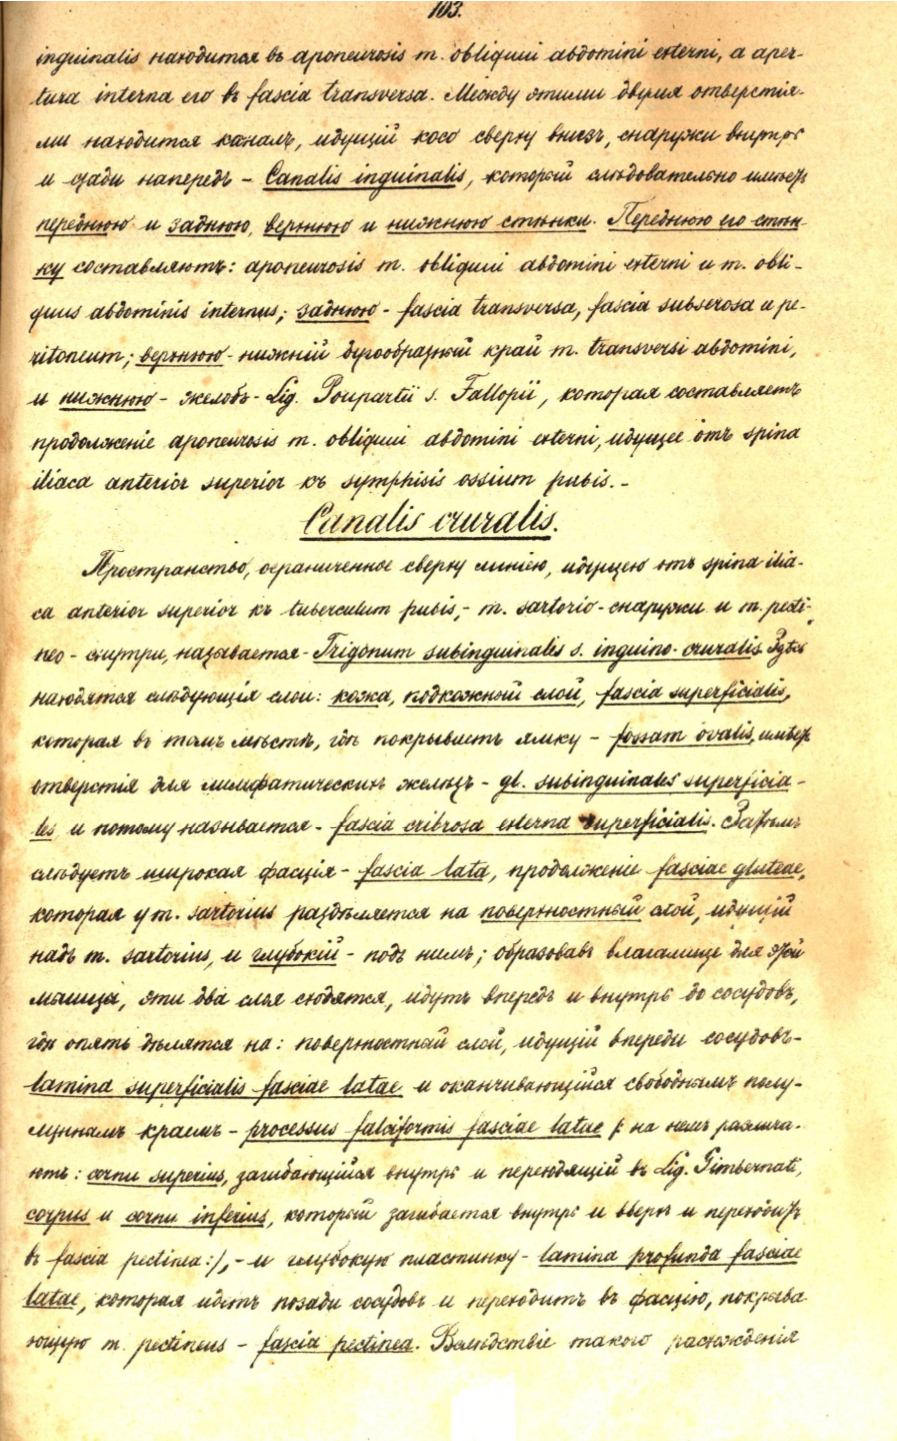 103.
inguinalis находится въ aponeurosis m. obliquii abdomini externi, а aper-
tura interna его въ fascia transversa. Между этими двумя отверстія-
ми находится каналъ, идущій косо сверху внизъ, снаружи внутрь
и сзади напередъ – Canalis inguinalis, который слѣдовательно имѣетъ
переднюю и заднюю, верхнюю и нижнюю стѣнки. Переднюю его стѣн-
ку составляютъ: aponeurosis m. obliquii abdomini externi и m. obli-
quus abdominis internus; заднюю – fascia transversa, fascia subserosa и pe-
ritoneum; верхнюю – нижній дугообразный край m. transversi abdomini,
и нижнюю – желобъ – Lig. Poupartii s. Fallopii, которая составляетъ
продолженіе aponeurosis m. obliquii abdomini externi, идущее отъ spina
iliaca anterior superior къ symphisis ossium pubis. –
Canalis cruralis.
Пространство, ограниченное сверху линіею, идущею отъ spina ilia-
ca anterior superior къ tuberculum pubis, – m. sartorio – снаружи и m. pecti-
neo – снутри, называется – Trigonum subinguinales s. inguino-cruralis. Здѣсь
находятся слѣдующія слои: кожа, подкожный слой, fascia superficialis,
которая въ томъ мѣстѣ, гдѣ покрываетъ ямку – fossam ovalis, имѣетъ
отверстія для лимфатическихъ железъ – gl. subinguinales superficia-
les и потому называется – fascia cribrosa externa superficialis. Затѣмъ
слѣдуетъ широкая фасція – fascia lata, продолженіе fasciae gluteae,
которая у m. sartorius раздѣляется на поверхностный слой, идущій
надъ m. sartorius, и глубокій – подъ нимъ; образовавъ влагалище для этой
мышцы, эти два слоя сходятся, идутъ впередъ и внутрь до сосудовъ,
гдѣ опять дѣлятся на: поверхностный слой, идущій впереди сосудовъ –
lamina superficialis fasciae latae и оканчивающійся свободнымъ полу-
луннымъ краемъ – processus falciformis fasciae latae /: на немъ различа-
ютъ: cornu superius, загибающійся внутрь и переходящій въ Lig. Gimbernati,
corpus и cornu inferius, который загибается внутрь и вверхъ и переходитъ
въ fascia pectinea:/, – и глубокую пластинку – lamina profunda fasciae
latae, которая идетъ позади сосудовъ и переходитъ въ фасцію, покрыва
ющую m. pectineus – fascia pectinea. Вслѣдствіе такого расхожденія